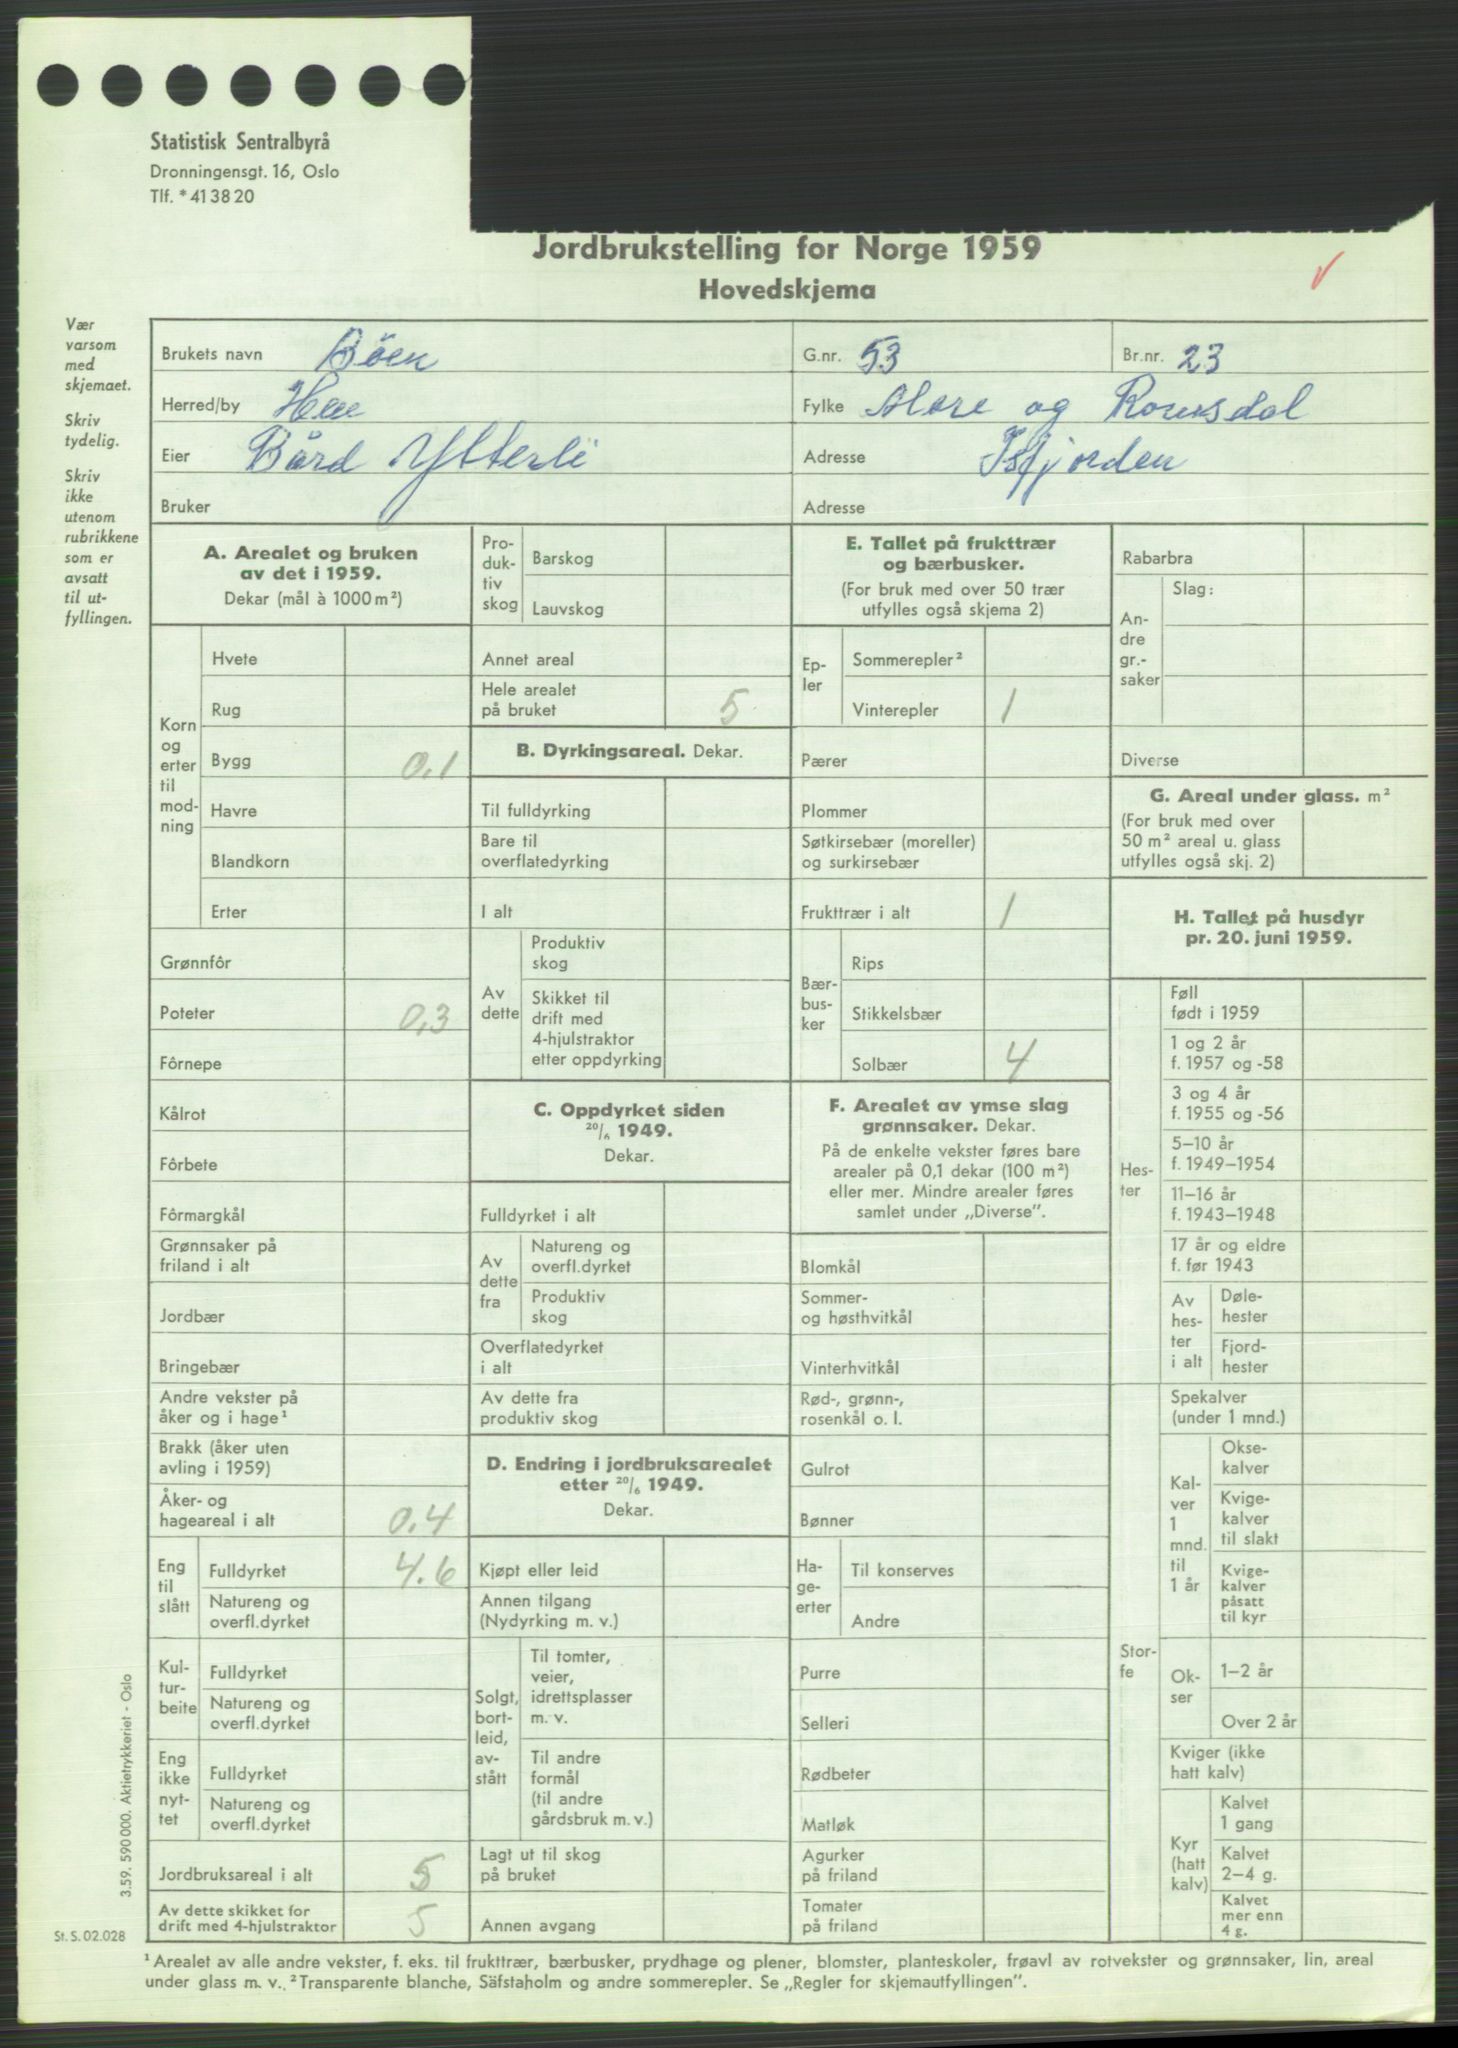 Statistisk Sentralbyrå
Dronningensgt. 16, Oslo
Tlf. *41 38 20
Jordbrukstelling for Norge 1959
Hovedskjema
Vær
varsom
med
skjemaet.
Skriv
tydelig.
Skriv
ikke
utenom
rubrikkene
som er
avsatt
til ut-
fyllingen.
Brukets navn Böen G.nr. 53 Br.nr. 23
Herred/by Hen Fylke Møre og Romsdal
Eier Bård Ytterli Adresse Isfjorden
Bruker Adresse
A. Arealet og bruken
av det i 1959.
Dekar (mål à 1000 m²)
Korn
og
erter
til
mod-
ning
Hvete
Rug
Bygg 0,1
Havre
Blandkorn
Erter
Grønnfôr
Poteter 0,3
Fôrnepe
Kålrot
Fôrbete
Fôrmargkål
Grønnsaker på
friland i alt
Jordbær
Bringebær
Andre vekster på
åker og i hage¹
Brakk (åker uten
avling i 1959)
Åker- og
hageareal i alt 0.4
Eng
til
slått
Fulldyrket 4.6
Natureng og
overfl.dyrket
Kul-
tur-
beite
Fulldyrket
Natureng og
overfl.dyrket
Eng
ikke
nyt-
tet
Fulldyrket
Natureng og
overfl.dyrket
Jordbruksareal i alt 5
Av dette skikket for
drift med 4-hjulstraktor 5
Pro-
duk-
tiv
skog
Barskog
Lauvskog
Annet areal
Hele arealet
på bruket 5
B. Dyrkingsareal. Dekar.
Til fulldyrking
Bare til
overflatedyrking
I alt
Av
dette
Produktiv
skog
Skikket til
drift med
4-hjulstraktor
etter oppdyrking
C. Oppdyrket siden
20/6 1949.
Dekar.
Fulldyrket i alt
Av
dette
fra
Natureng og
overfl.dyrket
Produktiv
skog
Overflatedyrket
i alt
Av dette fra
produktiv skog
D. Endring i jordbruksarealet
etter 20/6 1949.
Dekar.
Kjøpt eller leid
Annen tilgang
(Nydyrking m. v.)
Solgt,
bort-
leid,
av-
stått
Til tomter,
veier,
idrettsplasser
m. v.
Til andre
formål
(til andre
gårdsbruk m. v.)
Lagt ut til skog
på bruket
Annen avgang
E. Tallet på frukttrær
og bærbusker.
(For bruk med over 50 trær
utfylles også skjema 2)
Ep-
ler
Sommerepler²
Vinterepler 1
Pærer
Plommer
Søtkirsebær (moreller)
og surkirsebær
Frukttrær i alt 1
Bær-
bus-
ker
Rips
Stikkelsbær
Solbær 4
F. Arealet av ymse slag
grønnsaker. Dekar.
På de enkelte vekster føres bare
arealer på 0,1 dekar (100 m²)
eller mer. Mindre arealer føres
samlet under „Diverse".
Blomkål
Sommer-
og høsthvitkål
Vinterhvitkål
Rød-, grønn-,
rosenkål o. l.
Gulrot
Bønner
Ha-
ge-
erter
Til konserves
Andre
Purre
Selleri
Rødbeter
Matløk
Agurker
på friland
Tomater
på friland
Rabarbra
An-
dre
gr.-
saker
Slag:
Diverse
G. Areal under glass. m²
(For bruk med over
50 m² areal u. glass
utfylles også skj. 2)
H. Tallet på husdyr
pr. 20. juni 1959.
Hes-
ter
Føll
født i 1959
1 og 2 år
f. 1957 og -58
3 og 4 år
f. 1955 og -56
5–10 år
f. 1949–1954
11–16 år
f. 1943–1948
17 år og eldre
f. før 1943
Av
hes-
ter
i alt
Døle-
hester
Fjord-
hester
Stor-
fe
Spekalver
(under 1 mnd.)
Kal-
ver
1
mnd.
til
1 år
Okse-
kalver
Kvige-
kalver
til slakt
Kvige-
kalver
påsatt
til kyr
Ok-
ser
1–2 år
Over 2 år
Kviger (ikke
hatt kalv)
Kyr
(hatt
kalv)
Kalvet
1 gang
Kalvet
2–4 g.
Kalvet
mer enn
4 g.
3.59. 590 000. Aktietrykkeriet - Oslo
St. S. 02.028
¹ Arealet av alle andre vekster, f. eks. til frukttrær, bærbusker, prydhage og plener, blomster, planteskoler, frøavl av rotvekster og grønnsaker, lin, areal
under glass m. v. ² Transparente blanche, Säfstaholm og andre sommerepler. Se „Regler for skjemautfyllingen".